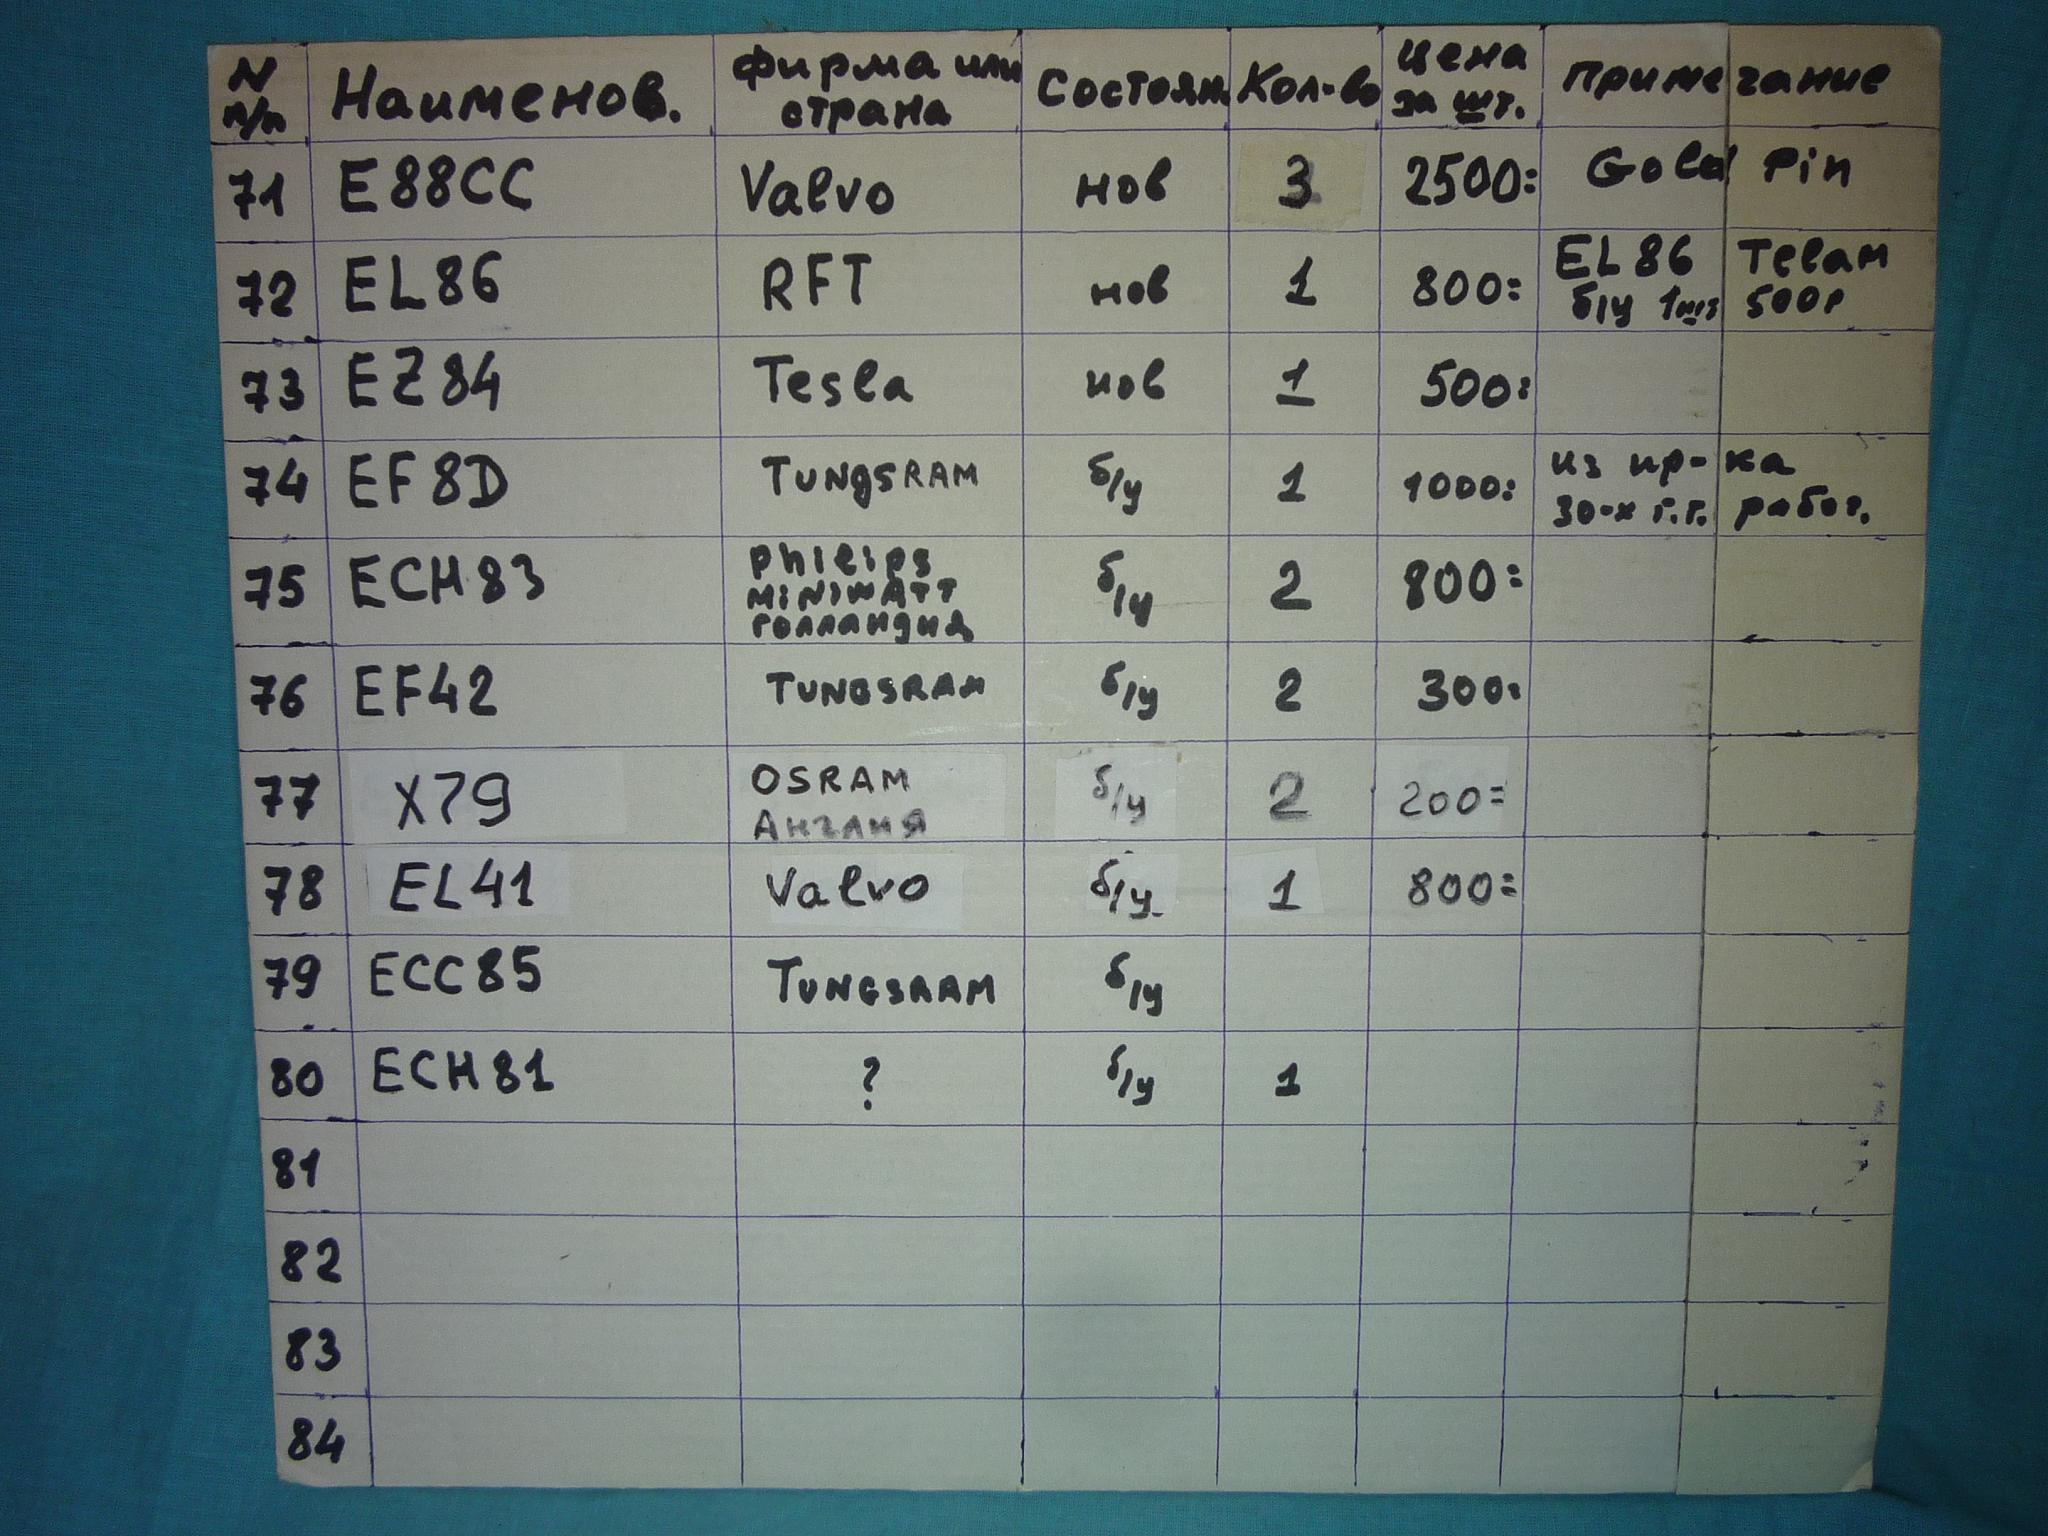 N п/п Наименов. Фирма или страна Состоян. Кол-во Цена за шт. Примечание
71 E88CC Valvo нов 3 2500= Gold Pin
72 EL86 RFT нов 1 800= EL86 Telam б/у 1шт 500р
73 EZ84 Tesla нов 1 500=
74 EF8D TUNgSRAM б/у 1 1000= из пр-ка 30-х г.г. работ.
75 ECH83 Philips MiNiWATT Голландия б/у 2 800=
76 EF42 TUNGSRAM б/у 2 300=
77 X79 OSRAM Англия б/у 2 200=
78 EL41 Valvo б/у 1 800=
79 ECC85 TUNGSRAM б/у
80 ECH81 ? б/у 1
81
82
83
84